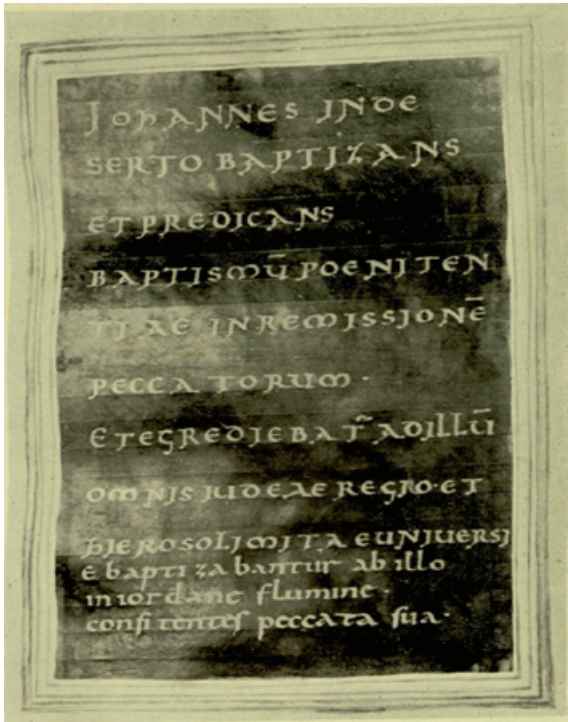 JOHANNES JNDE
SERTO BAPTIZANS
ETPREDICANS
BAPTISMŪ POENJTEN
TJAE JNREMJSSJONĒ
PECCATORUM ·
ETEGREDJEBAT̄ ADJLLŪ
OMNJS JUDEAE REGJO · ET
HJEROSOLJMJTAE UNJUERSJ
E baptizabantur ab illo
in iordane flumine ·
confitentes peccata sua ·